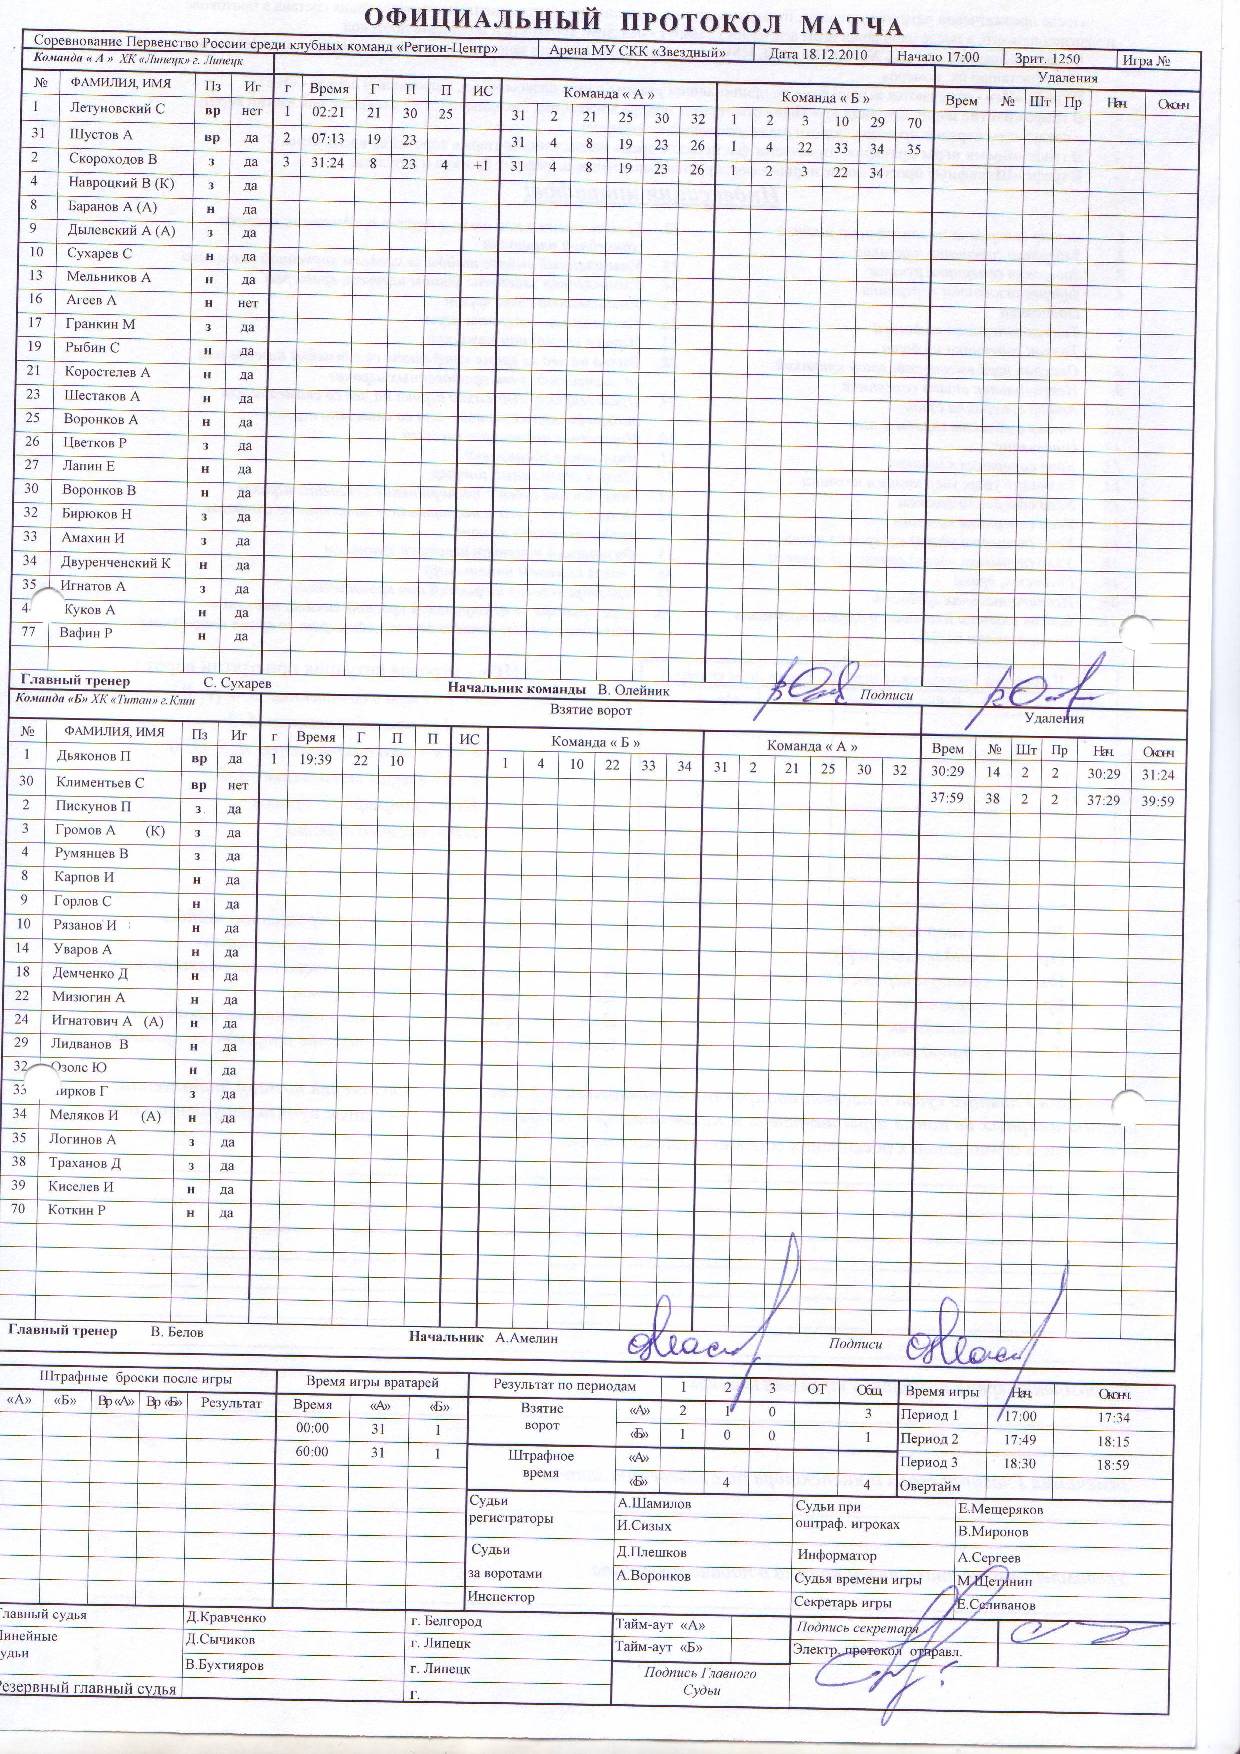 ОФИЦИАЛЬНЫЙ ПРОТОКОЛ МАТЧА
Соревнование Первенство России среди клубных команд «Регион-Центр» Арена МУ СКК «Звездный» Дата 18.12.2010 Начало 17:00 Зрит. 1250 Игра №
Команда « А » ХК «Липецк» г. Липецк Удаления
№ ФАМИЛИЯ, ИМЯ Пз Иг г Время Г П П ИС Команда « А » Команда « Б » Врем № Шт Пр Нач. Оконч
1 Летуновский С вр нет 1 02:21 21 30 25 31 2 21 25 30 32 1 2 3 10 29 70
31 Шустов А вр да 2 07:13 19 23 31 4 8 19 23 26 1 4 22 33 34 35
2 Скороходов В з да 3 31:24 8 23 4 +1 31 4 8 19 23 26 1 2 3 22 34
4 Навроцкий В (К) з да
8 Баранов А (А) н да
9 Дылевский А (А) з да
10 Сухарев С н да
13 Мельников А н да
16 Агеев А н нет
17 Гранкин М з да
19 Рыбин С н да
21 Коростелев А н да
23 Шестаков А н да
25 Воронков А н да
26 Цветков Р з да
27 Лапин Е н да
30 Воронков В н да
32 Бирюков Н з да
33 Амахин И з да
34 Двуренченский К н да
35 Игнатов А з да
4 Куков А н да
77 Вафин Р н да
Главный тренер С. Сухарев Начальник команды В. Олейник Подписи
Команда «Б» ХК «Титан» г.Клин Взятие ворот Удаления
№ ФАМИЛИЯ, ИМЯ Пз Иг г Время Г П П ИС Команда « Б » Команда « А » Врем № Шт Пр Нач. Оконч
1 Дьяконов П вр да 1 19:39 22 10 1 4 10 22 33 34 31 2 21 25 30 32 30:29 14 2 2 30:29 31:24
30 Климентьев С вр нет 37:59 38 2 2 37:29 39:59
2 Пискунов П з да
3 Громов А (К) з да
4 Румянцев В з да
8 Карпов И н да
9 Горлов С н да
10 Рязанов И н да
14 Уваров А н да
18 Демченко Д н да
22 Мизюгин А н да
24 Игнатович А (А) н да
29 Лидванов В н да
32 Озолс Ю н да
33 ирков Г з да
34 Меляков И (А) н да
35 Логинов А з да
38 Траханов Д з да
39 Киселев И н да
70 Коткин Р н да
Главный тренер В. Белов Начальник А.Амелин Подписи
Штрафные броски после игры Время игры вратарей Результат по периодам 1 2 3 ОТ Общ Время игры Нач. Оконч.
«А» «Б» Вр «А» Вр «Б» Результат Время «А» «Б» Взятие ворот «А» 2 1 0 3 Период 1 17:00 17:34
00:00 31 1 «Б» 1 0 0 1 Период 2 17:49 18:15
60:00 31 1 Штрафное время «А» Период 3 18:30 18:59
«Б» 4 4 Овертайм
Судьи регистраторы А.Шамилов Судьи при оштраф. игроках Е.Мещеряков
И.Сизых В.Миронов
Судьи за воротами Д.Плешков Информатор А.Сергеев
А.Воронков Судья времени игры М.Щетинин
Инспектор Секретарь игры Е.Селиванов
Главный судья Д.Кравченко г. Белгород Тайм-аут «А» Подпись секретаря
Линейные судьи Д.Сычиков г. Липецк Тайм-аут «Б» Электр. протокол отправл.
В.Бухтияров г. Липецк Подпись Главного Судьи
Резервный главный судья г.